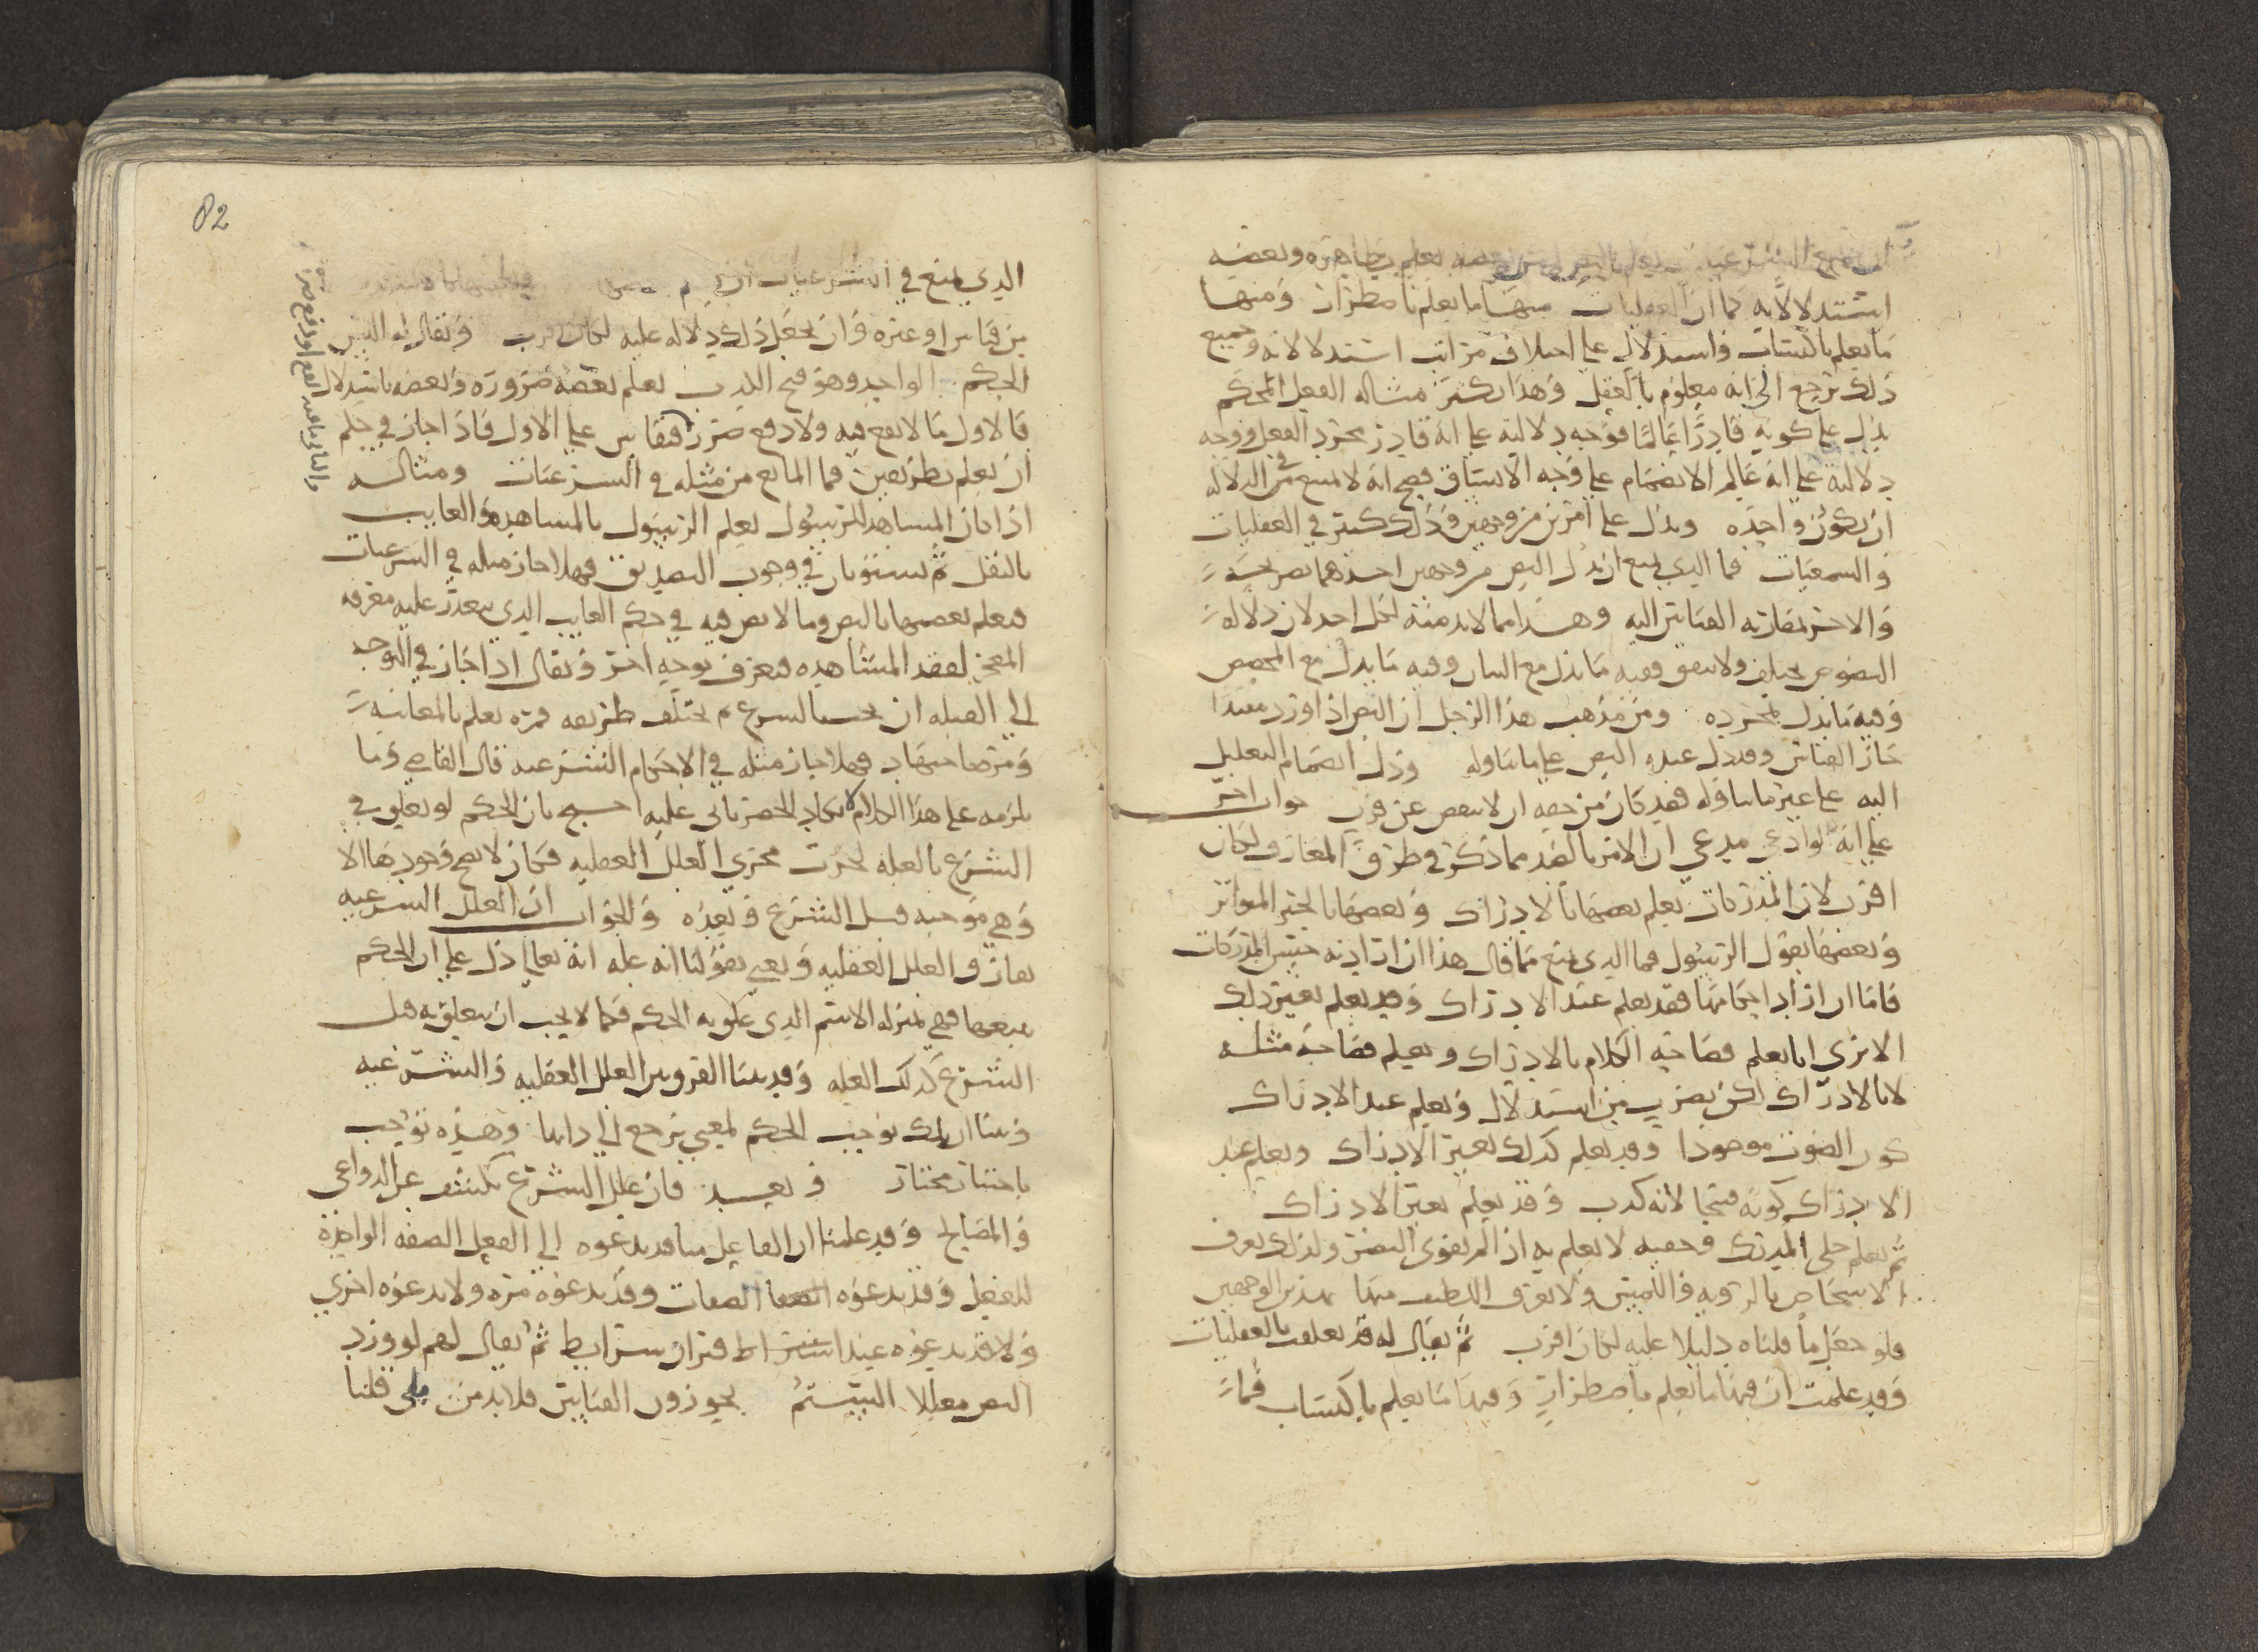 ان جميع الشرعيات يعلم بالنص لكن بعضه يعلم بظاهره وبعضه
استدلالا به كما ان العقليات منها ما يعلم باضطرار ومنها
ما يعلم باكتساب واستدلال على اختلاف مراتب استدلالاته وجميع
ذلك ترجع الى انه معلوم بالعقل وهذا يكثر مثاله الفعل المحكم
يدل على كونه قادرا عالما فوجه دلالته على انه قادر مجرد الفعل ووجه
دلالته على انه عالم الانضمام على وجه الاتساق فصح انه لا يمتنع في الدلاله
ان يكون واحده ويدل على امرين من وجهين وذلك كثير في العقليات
والسمعيات فما الذي يمنع ان يدل النص من وجهين احدهما بصريحه
والاخر بمقارنه القياس اليه وهذا مما لا بد منه لكل احد لان دلاله
النصوص تختلف ولا تتفق ففيه ما يدل مع البيان وفيه ما يدل مع المخصص
وفيه ما يدل بمجرده ومن مذهب هذا الرجل ان النص اذا ورد مقيدا
جاز القياس وقد دل عنده النص على ما تناوله ودل انضمام التعليل
اليه على غير ما تناوله فقد كان من حقه ان لا ينقص عن قرب جواب اخر
على انه لو ادعى مدعي ان الامر بالضد مما ذكر في طرق المعارف لكان
اقرب لان المدركات يعلم بعضها بالادراك وبعضها بالخبر المتواتر
وبعضها بقول الرسول فما الذي يمنع مما قال هذا ان اراد به جنس المدركات
فاما ان اراد احكامها فقد يعلم عند الادراك وقد يعلم بغير ذلك
الا ترى انا نعلم فصاحه الكلام بالادراك ونعلم فصاحة مثله
لا بالادراك لكن بضرب من استدلال ونعلم عند الادراك
كون الصوت موجودا وقد يعلم كذلك بغير الادراك ونعلم عند
الادراك كونه قبيحا لانه كذب وقد يعلم بغير الادراك
ثم نعلم جلي المدرك وخفيه لا نعلم به اذا لم يقوى البصر ولذلك نعرف
الاشخاص بالرويه واللمس ولا نعرف اللطيف منها بهذين الوجهين
فلو جعل ما قلناه دليلا عليه لكان اقرب ثم يقال له قد تعلقت بالعقليات
وقد علمت ان فيها ما يعلم باضطرار وفيها ما يعلم باكتساب فما
82
الذي يمنع في الشرعيات ان
من قياس او غيره وان يجعل ذلك دلاله عليه لكان اقرب ويقال له اليس
الحكم الواحد وهو قبح الكذب يعلم بعضه ضروره وبعضه باستدلال
فالاول ما لا نفع فيه ولا دفع ضرر فنقايس على الاول فاذا جاز في حكم
ان يعلم بطريقين فما المانع من مثله في الشرعيات ومثاله
اذا كان المشاهد للرسول يعلم الرسول بالمشاهده والغايب
بالنقل ثم يستويان في وجوب التصديق فهلا جاز مثله في الشرعيات
فيعلم بعضها بالنص وما لا نص فيه في حكم الغايب الذي يتعذر عليه معرفه
المعجز لفقد المشاهده فيعرف بوجه اخر ويقال اذا جاز في التوجه
الى القبله ان يحسن بالشرع ثم يختلف طريقه فمره يعلم بالمعاينه
ومره باجتهاد فهلا جاز مثله في الاحكام الشرعيه قال القاضي وما
يلزمه على هذا الكلام لا يكاد الحصر ياتي عليه احتج بان الحكم لو تعلق في
الشرع بالعله لجرت مجرى العلل العقليه فكان لا يصح وجودها الا
وهي موجبه قبل الشرع وبعده والجواب ان العلل الشرعيه
تفارق العلل العقليه ونعني بقولنا انه عله انه تعالى دل على ان الحكم
يتبعها فهي بمنزله الاسم الذي علق به الحكم فكما لا يجب ان يتعلق به قبل
الشرع كذلك العله وقد بينا الفرق بين العلل العقليه والشرعيه
وبينا ان تلك توجب الحكم لمعنى يرجع الى ذاتها وهذه توجب
باختيار مختار وبعد فان علل الشرع تكشف عن الدواعي
والمصالح وقد علمنا ان الفاعل منا قد يدعوه الى الفعل الصفه الواحده
للفعل وقد يدعوه الصفات وقد يدعوه مره ولا يدعوه اخرى
ولا قد يدعوه عند اشتراط قران شرايط ثم يقال لهم لو ورد
النص معللا اليس يجوزون القياس فلا بد من بلى قلنا